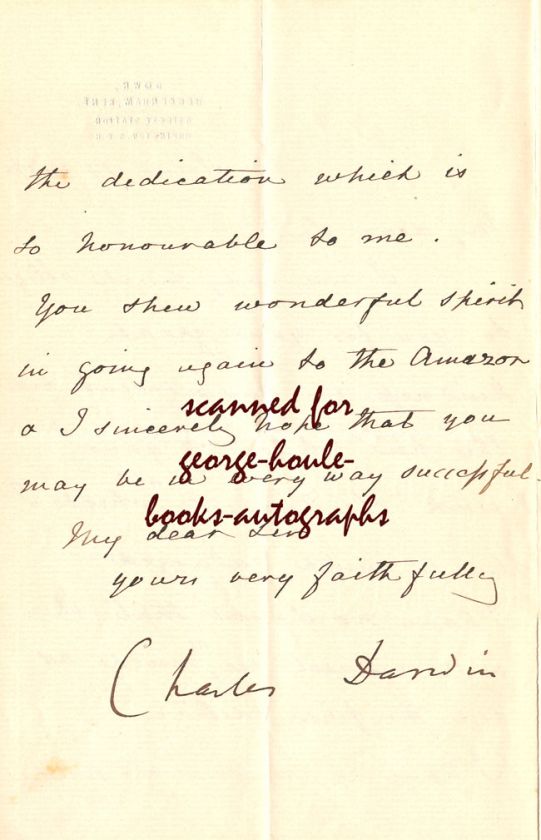 DOWN,
BECKENHAM, KENT.
RAILWAY STATION
ORPINGTON. S.E.R.
the dedication which is
so honourable to me.
You shew wonderful spirit
in going again to the Amazon
& I sincerely hope that you
may be in every way successful.
My dear Sir
yours very faithfully
Charles Darwin
scanned for
george-houle-
books-autographs